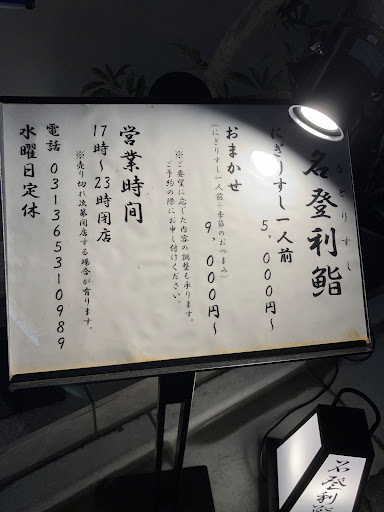 名登利鮨
なとりすし
にぎりすし一人前
5,000円〜
おまかせ
(にぎりすし一人前+季節のおつまみ)
9,000円〜
※ご要望に応じた内容の調整も承ります。
ご予約の際にお申し付けください。
営業時間
17時〜23時閉店
※売り切れ次第閉店する場合が有ります。
電話 031365310989
水曜日定休
名登利鮨